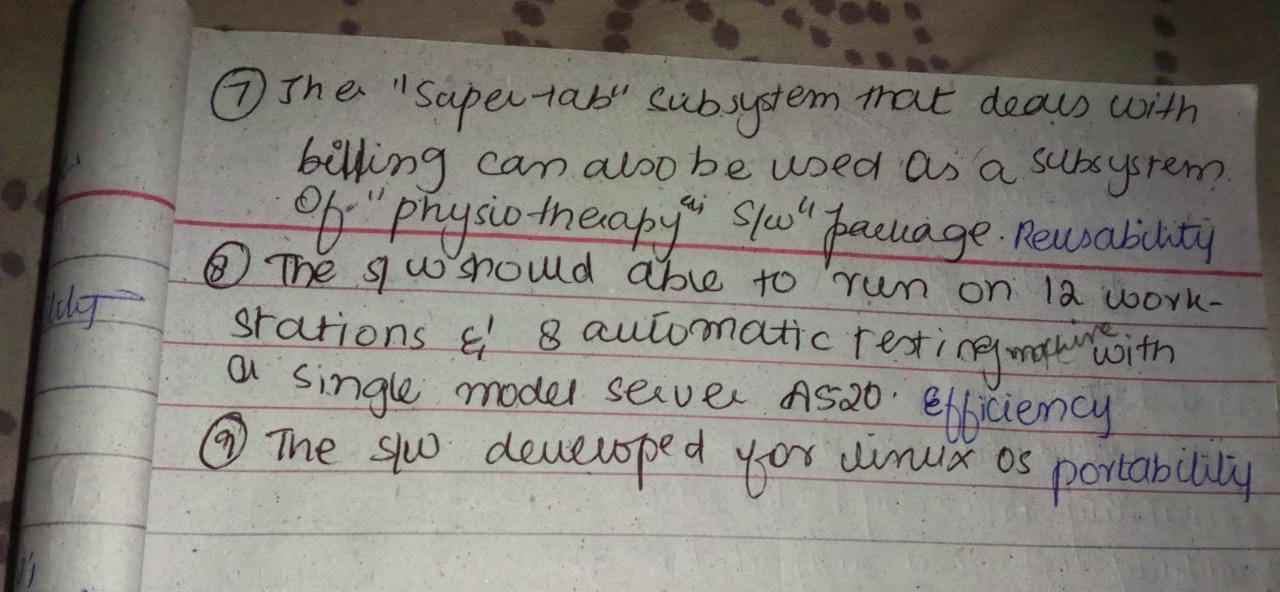 ⑦ The "Saper-lab" subsystem that deals with
billing can also be used as a subsystem
of "physiotherapy s/w" package. Reusability
⑧ The s/w should able to run on 12 work-
stations & 8 automatic testing machine with
a single model server AS20. Efficiency
⑨ The s/w developed for linux OS portability